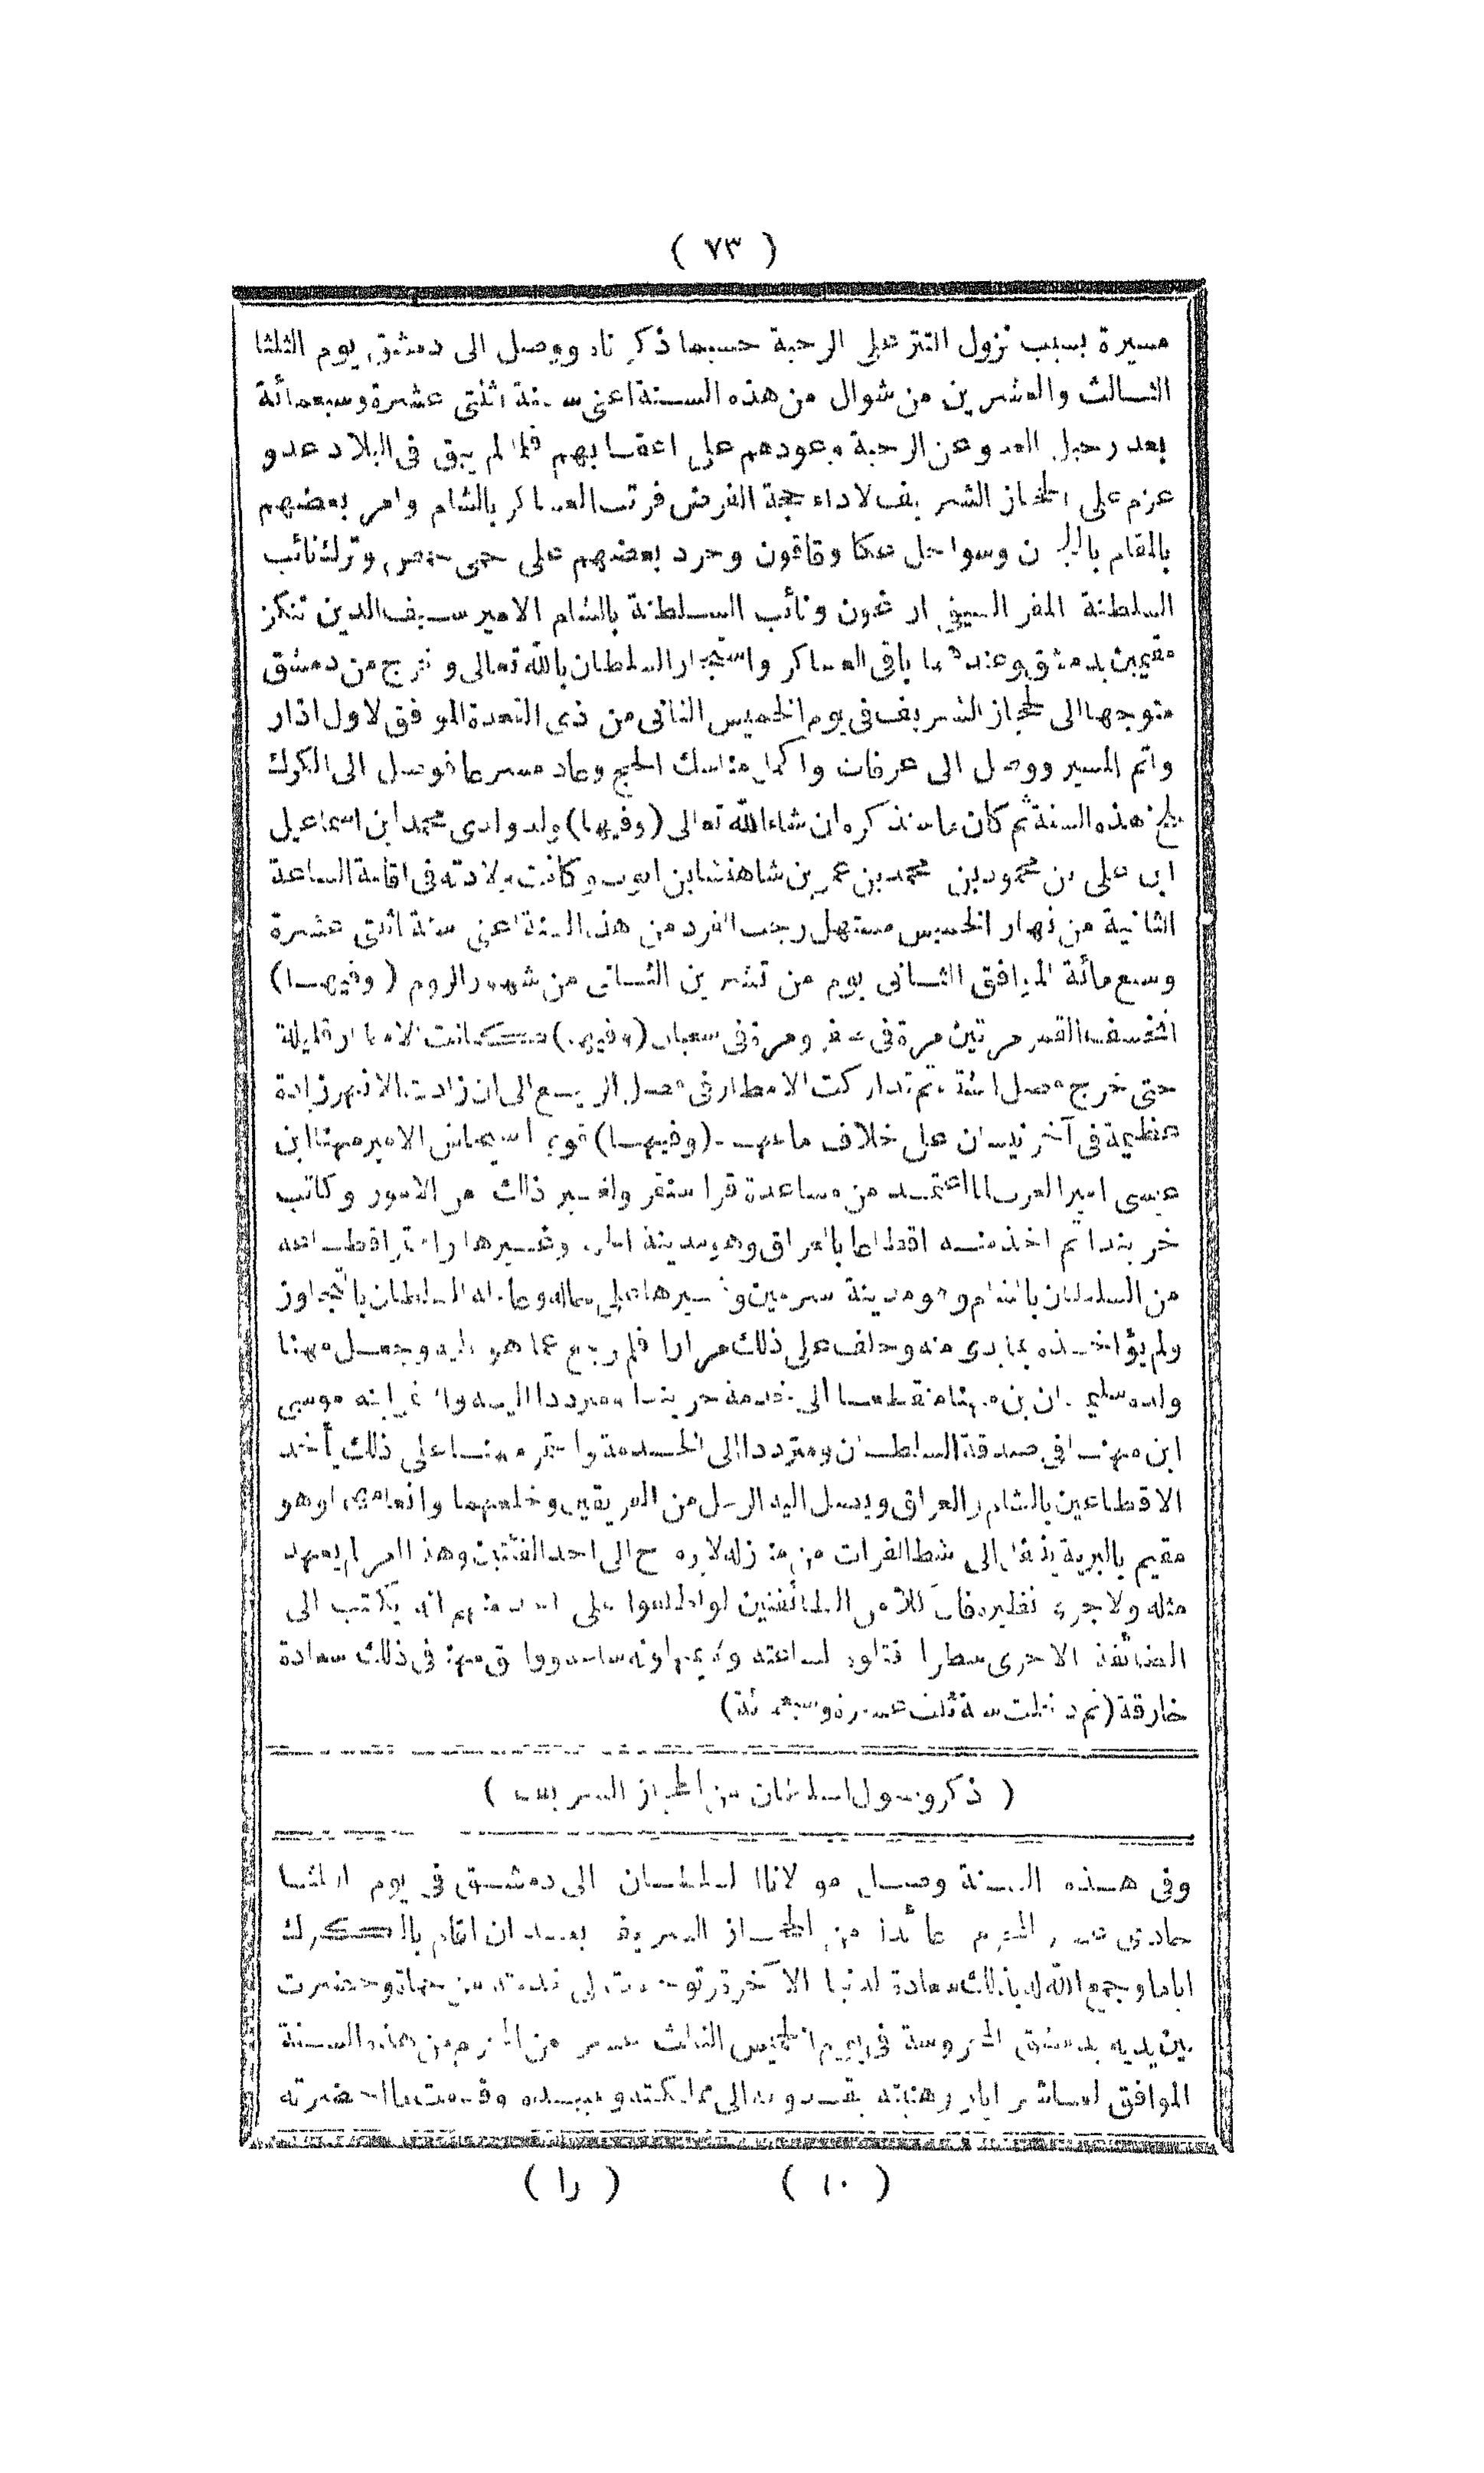 ( ٧٣ )
مسيرة بسبب نزول التتر على الرحبة حسبما ذكرناه ووصل الى دمشق يوم الثلثا
الثالث والعشرين من شوال من هذه السنة اعنى سنة اثنتى عشرة وسبعمائة
بعد رحيل العدو عن الرحبة وعودهم على اعقابهم فلما لم يبق فى البلاد عدو
عزم على الحجاز الشريف لاداء حجة الفرض فرتب العساكر بالشام وامر بعضهم
بالمقام وسواحل عكا وقاقون وجرد بعضهم على حمى حمص وترك نائب
السلطنة المقر السيفى ارغون ونائب السلطنة بالشام الامير سيف الدين تنكز
مقيمين بدمشق وعندهما باقى العساكر واستجار السلطان بالله تعالى وخرج من دمشق
متوجها الى الحجاز الشريف فى يوم الخميس الثانى من ذى القعدة الموافق لاول اذار
واتم المسير ووصل الى عرفات واكمل مناسك الحج وعاد مسرعا فوصل الى الكرك
سلخ هذه السنة ثم كان ما سنذكره ان شاء الله تعالى (وفيها) ولد ولدى محمد ابن اسماعيل
ابن على بن محمود بن محمد بن عمر بن شاهنشا بن ايوب وكانت ولادته فى اقامة الساعة
الثانية من نهار الخميس مستهل رجب الفرد من هذه السنة اعنى سنة اثنتى عشرة
وسبع مائة الموافق الثانى يوم من تشرين الثانى من شهور الروم (وفيها)
انخسف القمر مرتين مرة فى صفر ومرة فى شعبان (وفيها) كانت الامطار قليلة
حتى خرج فصل الشتاء ثم تداركت الامطار فى فصل الربيع الى ان زادت الانهر زيادة
عظيمة فى آخر نيسان على خلاف ما عهد (وفيها) قوى استيحاش الامير مهنا ابن
عيسى امير العرب لما اعتمده من مساعدة قراسنقر ولغير ذلك من الامور وكاتب
خربندا ثم اخذ منه اقطاعا بالعراق وهو مدينة الحلة وغيرها واستمر اقطاعه
من السلطان بالشام وهو مدينة سرمين وغيرها على حاله وعامله السلطان بالتجاوز
ولم يؤاخذه بما بدى منه وحلف على ذلك مرارا فلم يرجع عما هو عليه وجعل مهنا
ولده سليمان بن مهنا منقطعا الى خدمة خربندا ومترددا اليه ابنه موسى
ابن مهنا فى صدقة السلطان ومترددا الى الخدمة واستمر مهنا على ذلك يأخذ
الاقطاعين بالشام والعراق ويصل اليه الرسل من الفريقين وخلعهما وانعامهما وهو
مقيم بالبرية ينتقل الى شط الفرات من منزله لا يروح الى احد الفئتين وهذا امر لم يعهد
مثله ولا جرى نظيره فان كلا من الطائفتين لو اطلعوا على احد منهم انه يكتب الى
الطائفة الاخرى سطرا قتلوه لساعته ولا يمهلونه ساعة ووافق مهنا فى ذلك سعادة
خارقة (ثم دخلت سنة ثلث عشرة وسبعمائة)
( ذكر وصول السلطان من الحجاز الشريف )
وفى هذه السنة وصل مولانا السلطان الى دمشق فى يوم الثلثا
حادى عشر المحرم عائدا من الحجاز الشريف بعد ان اقام بالكرك
اياما وجمع الله له بذلك سعادة الدنيا والآخرة وتوجهت الى خدمته من حماة وحضرت
بين يديه بدمشق المحروسة فى يوم الخميس الثالث عشر من المحرم من هذه السنة
الموافق لعاشر ايار وهنيته بقدومه الى مملكته وعبيده وقدمت ما احضرته
( ١٠ ) ( را )